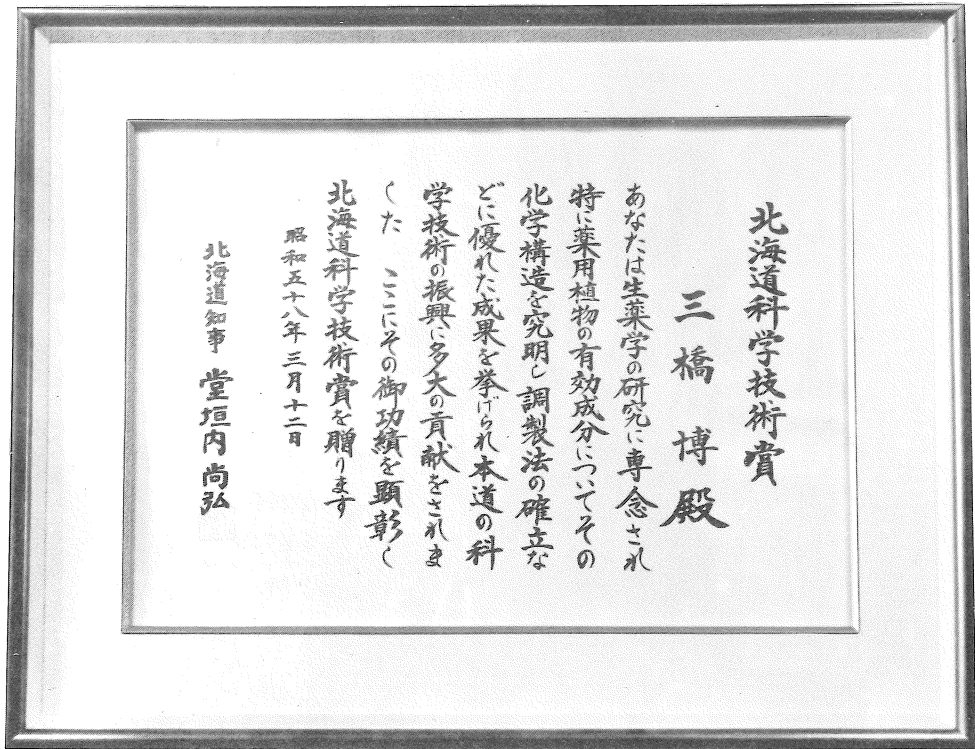 北海道科学技術賞
三橋博殿
あなたは生薬学の研究に専念され
特に薬用植物の有効成分についてその
化学構造を究明し調製法の確立な
どに優れた成果を挙げられ本道の科
学技術の振興に多大の貢献をされま
した　ここにその御功績を顕彰し
北海道科学技術賞を贈ります
昭和五十八年三月十二日
北海道知事　堂垣内尚弘